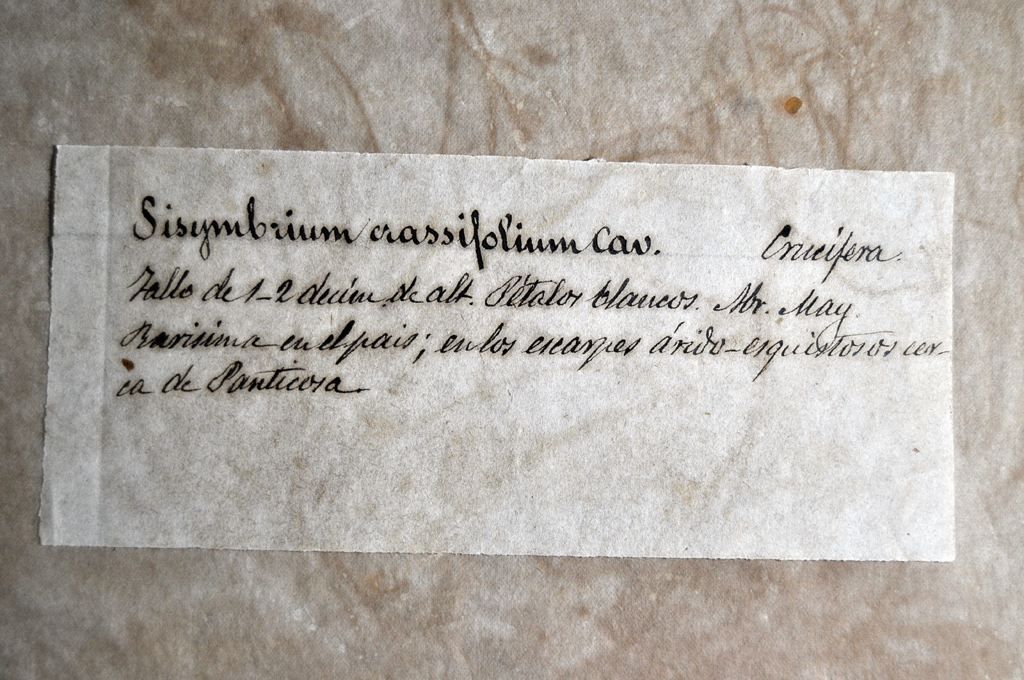 Sisymbrium crassifolium Cav. Crucífera.
Tallo de 1-2 decím de alt. Pétalos blancos. Abr. May.
Rarisima en el pais; en los escarpes árido-esquistosos cer-
ca de Panticosa.